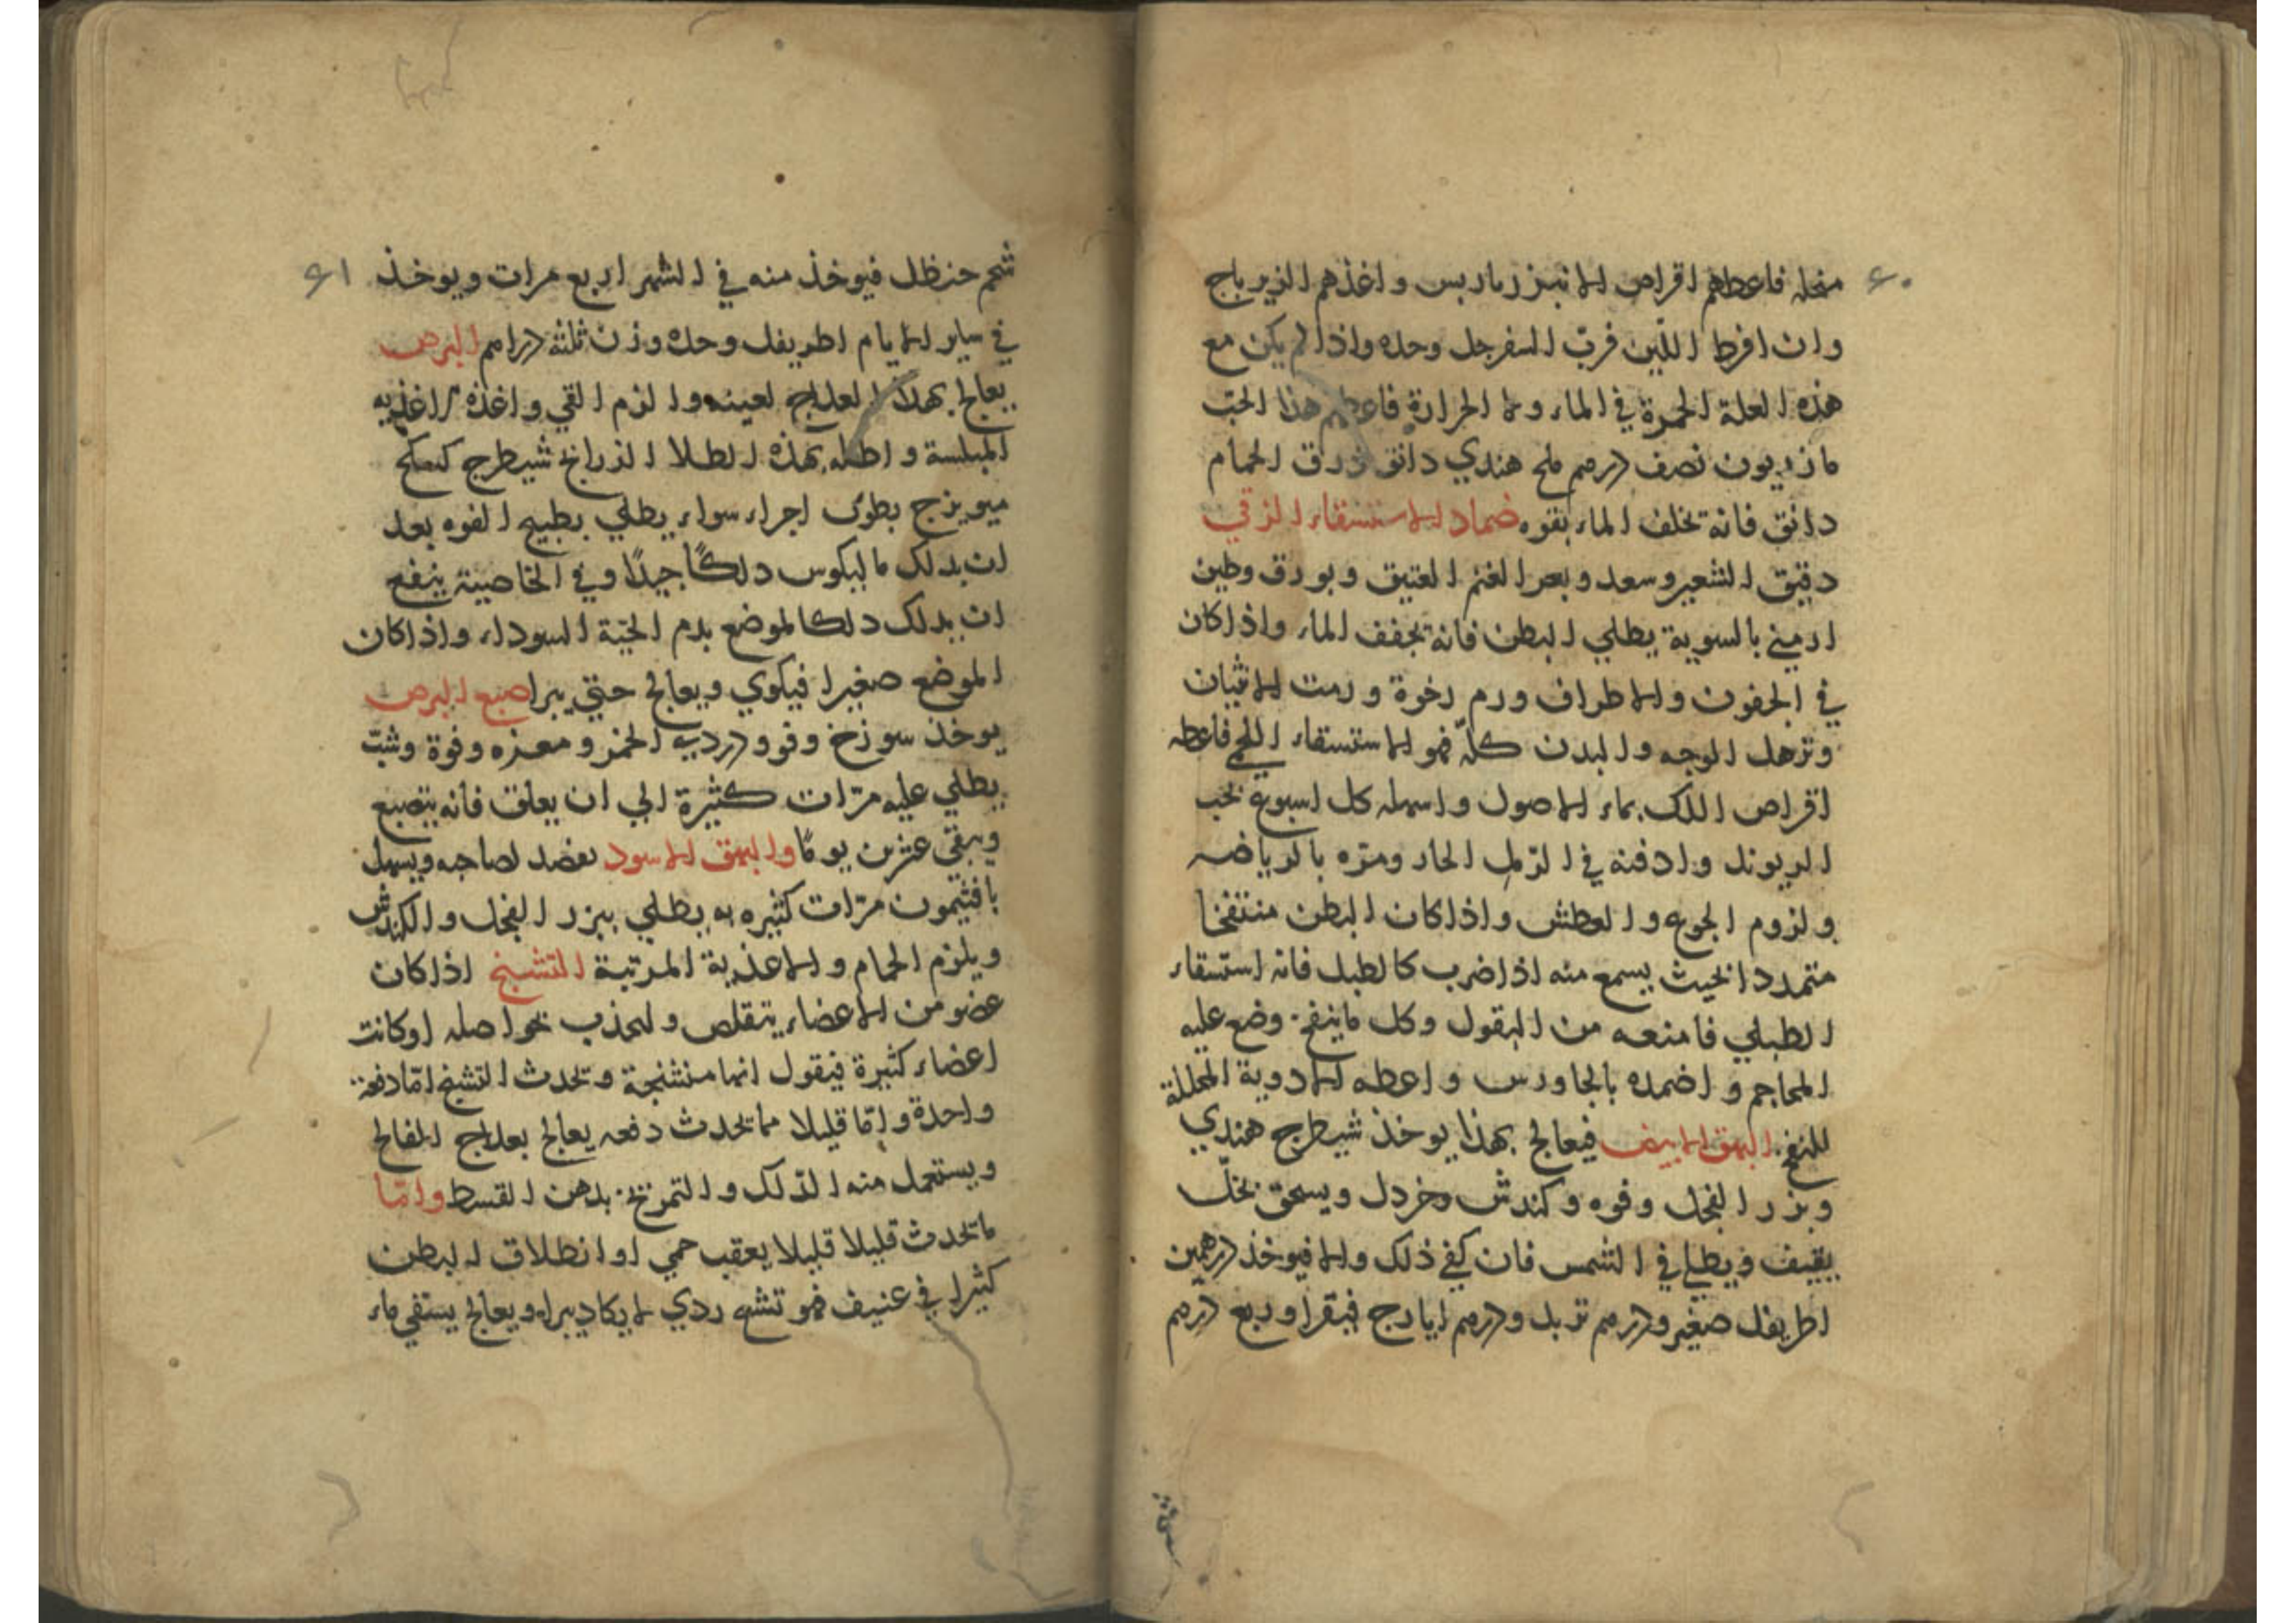 ٤٠
فاعطهم اقراص الانبرباريس واغذهم الزيرباج
وان افرط اللين فربّ السفرجل وحده واذا لم يكن مع
هذه العلة الحمرة في الماء ولا الحرارة فاعطهم هذا الحبّ
مازريون نصف درهم ملح هندي دانق ذرق الحمام
دانق فانه يخلف الماء بقوه ضماد الاستسقاء الزقي
دقيق الشعير وسعد وبعر الغنم العتيق وبورق وطين
ارميني بالسوية يطلي البطن فانه يجفف الماء واذا كان
في الجفون والاطراف ورم رخوة ورمت الانثيان
وترهل الوجه والبدن كلّه فهو الاستسقاء اللحمي فاعطه
اقراص اللك بماء الاصول واسهله كل اسبوع بحب
الريوند وادفنه في الرمل الحار ومره بالرياضه
ولزوم الجوع والعطش واذا كان البطن منتفخا
متمددا بحيث يسمع منه اذا ضرب كالطبل فانه استسقاء
الطبلي فامنعه من البقول وكل ما ينفخ وضع عليه
المحاجم واضمده بالجاورس واعطه الادوية المحللة
للنفخ البهق الابيض فيعالج بهذا يوخذ شيطرج هندي
وبزر الفجل وفوه وكندش وخردل ويسحق بخلّ
ثقيف ويطلي في الشمس فان كفي ذلك والا فيوخذ درهمين
اطريفل صغير ودرهم تربد ودرهم ايارج فيقرا وربع درهم
٤١
شحم حنظل فيوخذ منه في الشهر اربع مرات ويوخذ
في ساير الايام اطريفل وحده وزن ثلثة دراهم البرص
يعالج بهذا العلاج بعينه والزم القي واغذه اغذيه
المبلسة واطله بهذه الطلا الذراريح شيطرج
ميويزج اجراء سواء يطلي بطبيخ الفوه بعد
ان يدلك دلكًا جيدًا وفي الخاصية ينفع
ان يدلك دلكا لموضع بدم الحية السوداء واذا كان
الموضع صغيرا فيكوي ويعالج حتي يبرا صبغ البرص
يوخذ ودردي الخمر ومغره وفوة وشبّ
يطلي عليه مرّات كثيرة الي ان يعلق فانه ينصبغ
ويبقي عشرين يومًا والبهق الاسود يفصد لصاحبه ويسهل
بافثيمون مرّات كثيره يطلي ببزر الفجل والكندش
ويلزم الحمام والاغذية المرتبة التشنج اذا كان
عضو من الاعضاء يتقلص وينجذب نحو اصله او كانت
اعضاء كثيرة فيقول انها متشنجة ويحدث التشنج امّا دفعة
واحدة وامّا قليلا ما يحدث دفعه يعالج بعلاج الفالج
ويستعمل منه الدلك والتمريخ بدهن القسط وامّا
ما يحدث قليلا قليلا بعقب حمي او انطلاق البطن
كثيرا عنيف فهو تشنج ردي لا يكاد يبرا ويعالج يستقي ماء